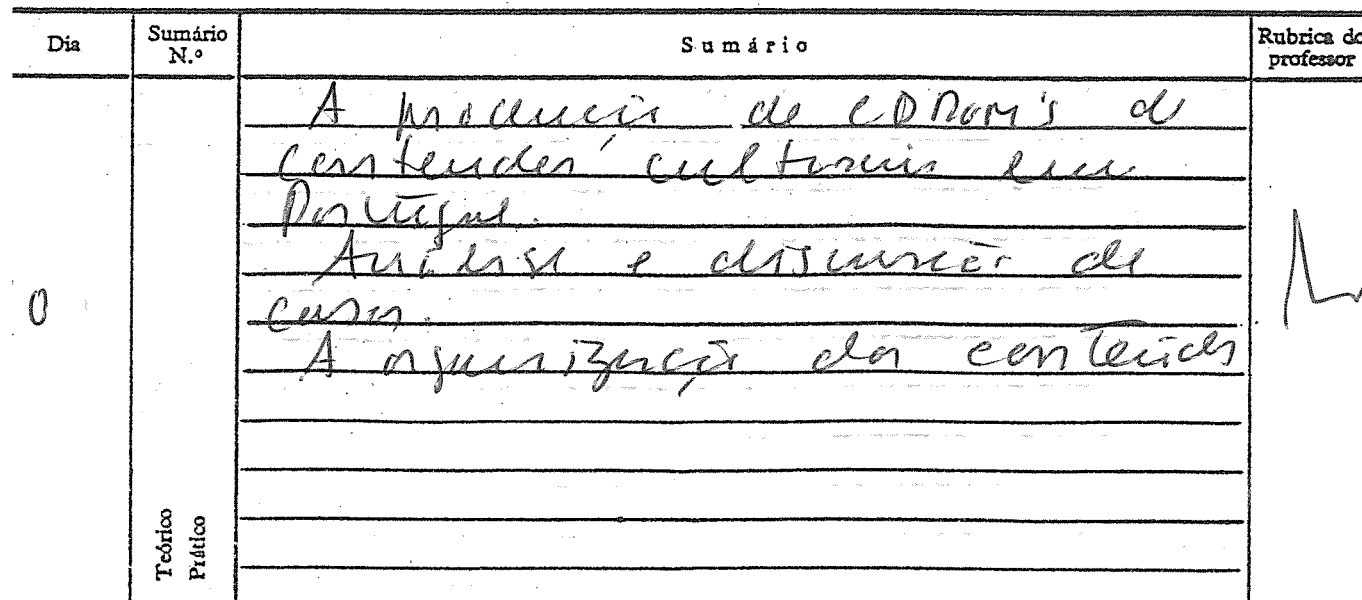 Dia
Sumário
N.º
Sumário
Rubrica do
professor
A produção de CDROM's de
conteúdos culturais em
Portugal.
Análise e discussão de
casos.
A organização dos conteúdos
0
Teórico
Prático